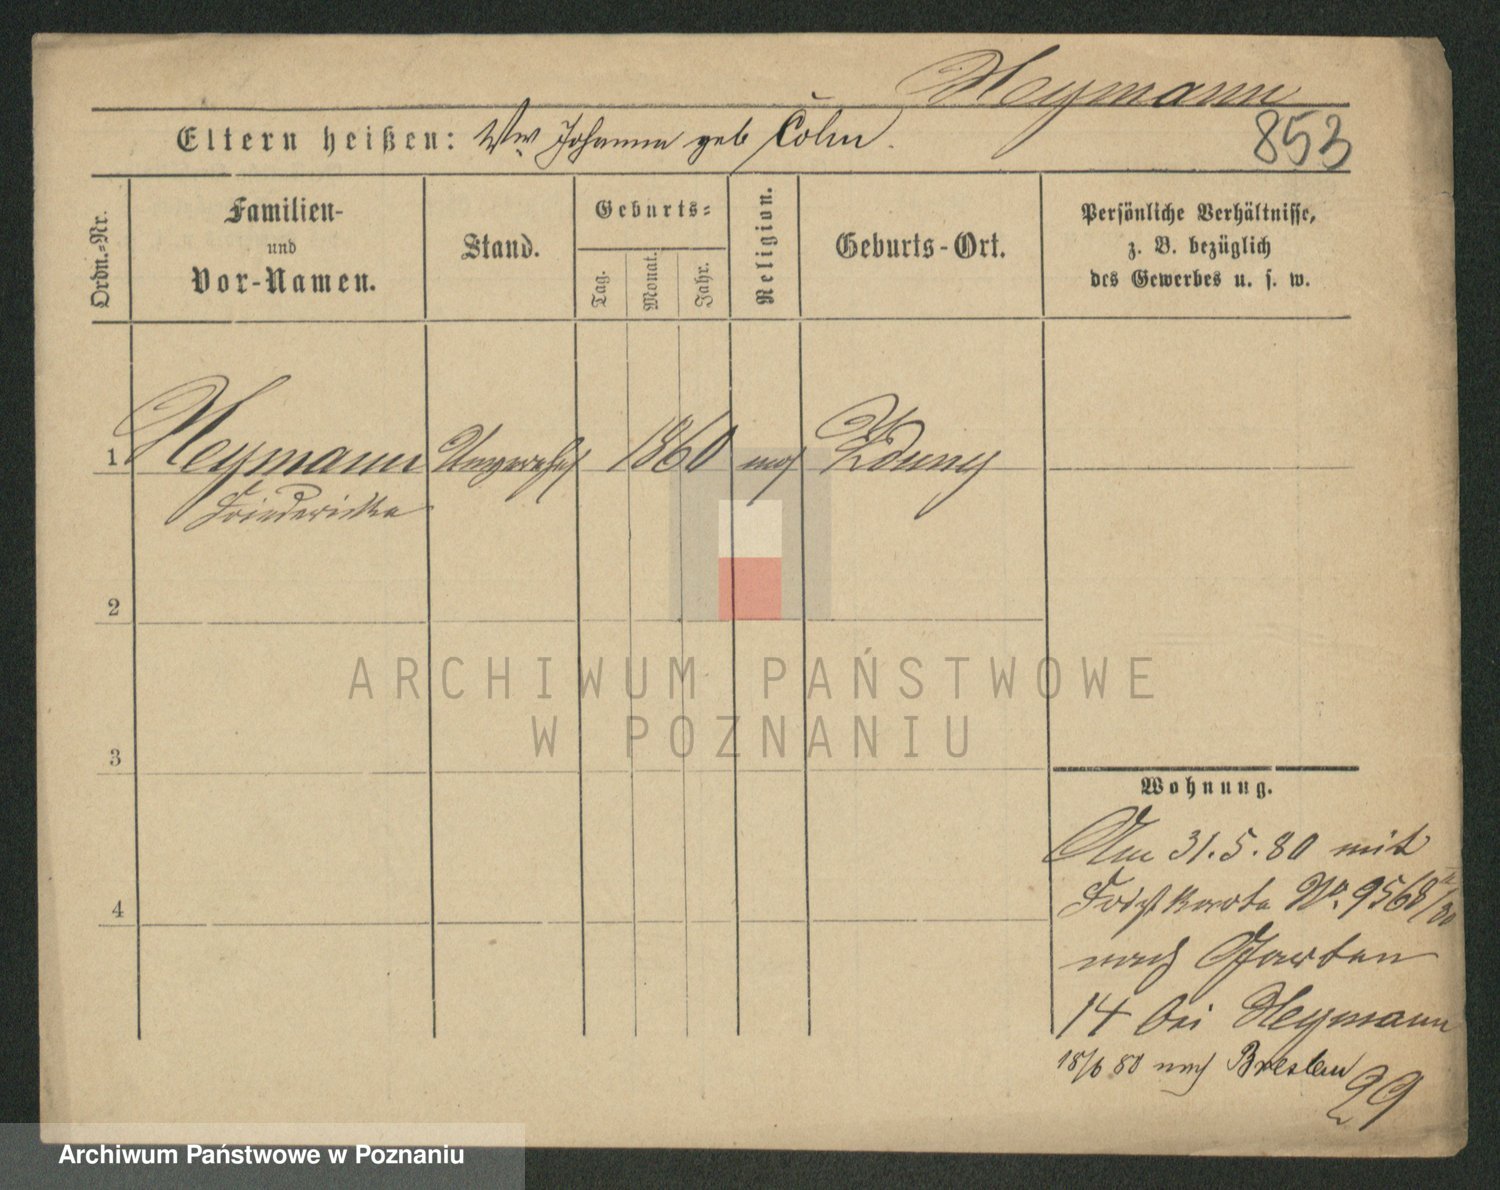 Heymann
853
Eltern heißen: Ww. Johanna geb Cohn.
Ordn.-Nr.
Familien-
und
Vor-Namen.
Stand.
Geburts-
Tag.
Monat.
Jahr.
Religion.
Geburts-Ort.
Persönliche Verhältnisse,
z. B. bezüglich
des Gewerbes u. s. w.
1 Heymann 1860 mos Zduny
Friedericke
2
ARCHIWUM PAŃSTWOWE
W POZNANIU
3
Wohnung.
4
Am 31.5.80 mit
No. 9568
nach Garten
14 bei Heymann
18/6 80 nach Breslau
29
Archiwum Państwowe w Poznaniu